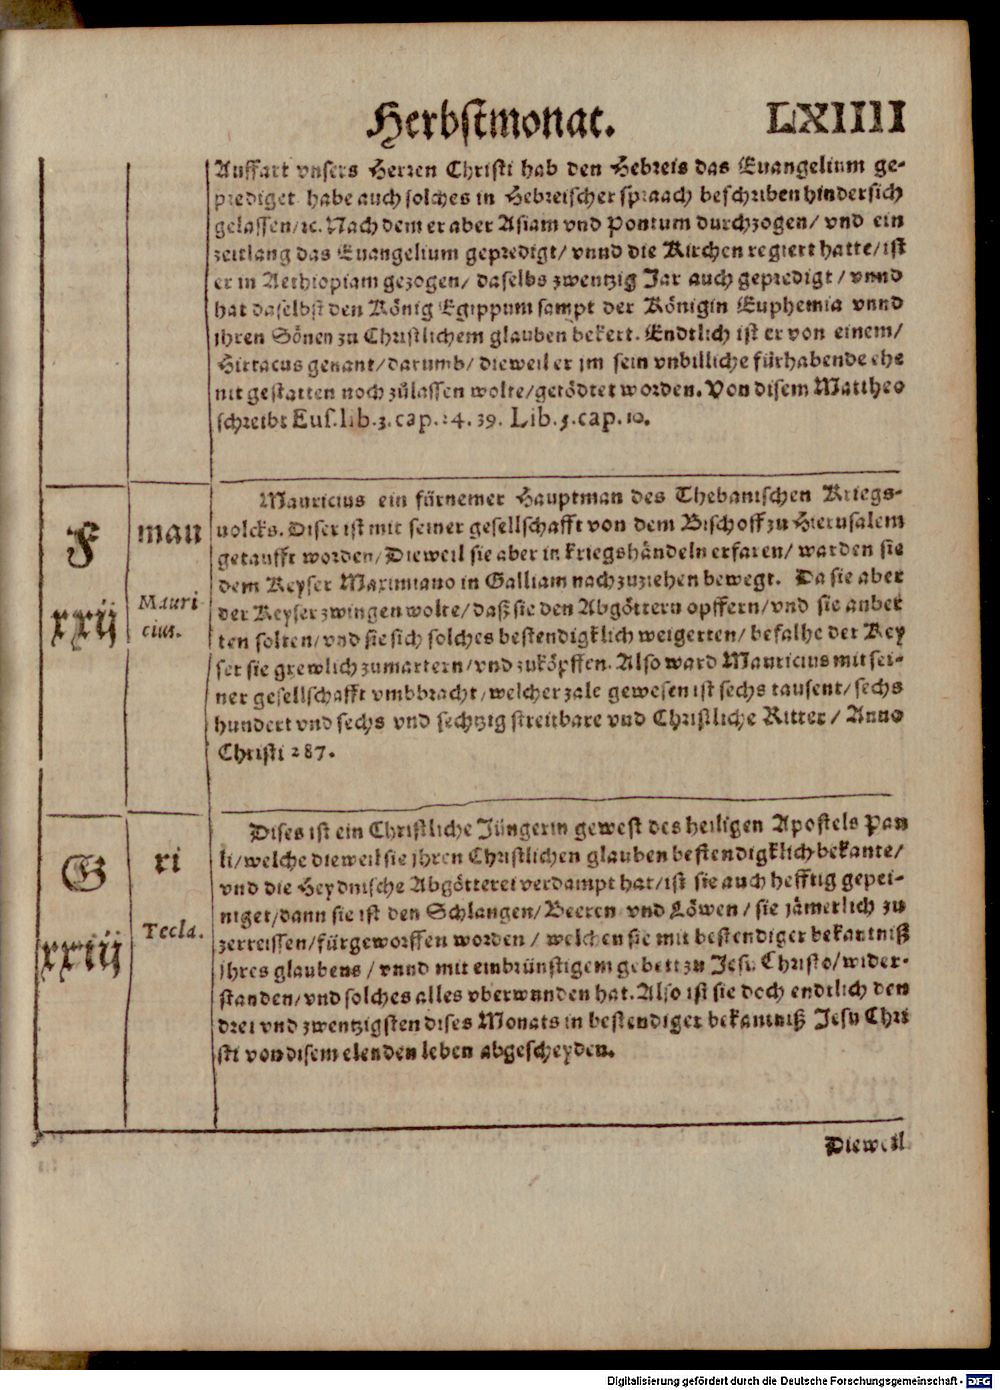 Herbstmonat. LXIIII
Auffart vnsers Herren Christi hab den Hebreis das Euangelium ge-
prediget habe auch solches in Hebreischer spraach beschriben hindersich
gelassen/ ꝛc. Nach dem er aber Asiam vnd Pontum durchzogen/ vnd ein
zeitlang das Euangelium gepredigt/ vnnd die Kirchen regiert hatte/ ist
er in Aethiopiam gezogen/ daselbs zwentzig Jar auch gepredigt/ vnnd
hat daselbst den König Egippum sampt der Königin Euphemia vnnd
jhren Sönen zu Christlichem glauben bekert. Endtlich ist er von einem/
Hirtacus genant/ darumb/ dieweil er jm sein vnbilliche fürhabende ehe
nit gestatten noch zůlassen wolte/ getödtet worden. Von disem Mattheo
schreibt Eus. lib. 3. cap. 24. 39. Lib. 5. cap. 10.
F
xxij
man
Mauri-
cius.
Mauricius ein fürnemer Hauptman des Thebanischen Kriegs-
uolcks. Diser ist mit seiner gesellschafft von dem Bischoff zu Hierusalem
getaufft worden/ Dieweil sie aber in kriegshändeln erfaren/ warden sie
dem Keyser Maximiano in Galliam nachzuziehen bewegt. Da sie aber
der Keyser zwingen wolte/ daß sie den Abgöttern opffern/ vnd sie anbet
ten solten/ vnd sie sich solches bestendigklich weigerten/ befalhe der Key
ser sie grewlich zumartern/ vnd zuköpffen. Also ward Mauricius mit sei-
ner gesellschafft vmbbracht/ welcher zale gewesen ist sechs tausent/ sechs
hundert vnd sechs vnd sechtzig streitbare vnd Christliche Ritter/ Anno
Christi 287.
G
xxiij
ri
Tecla.
Dises ist ein Christliche Jüngerin gewest des heiligen Apostels Pau
li/ welche dieweil sie jhren Christlichen glauben bestendigklich bekante/
vnd die Heydnische Abgötterei verdampt hat/ ist sie auch hefftig gepei-
niget/ dann sie ist den Schlangen/ Beeren vnd Löwen/ sie jämerlich zu
zerreissen/ fürgeworffen worden/ welchen sie mit bestendiger bekantniß
jhres glaubens/ vnnd mit einbrünstigem gebett zu Jesu Christo/ wider-
standen/ vnd solches alles vberwunden hat. Also ist sie doch endtlich den
drei vnd zwentzigsten dises Monats in bestendiger bekantniß Jesu Chri
sti von disem elenden leben abgescheyden.
Dieweil
Digitalisierung gefördert durch die Deutsche Forschungsgemeinschaft - DFG